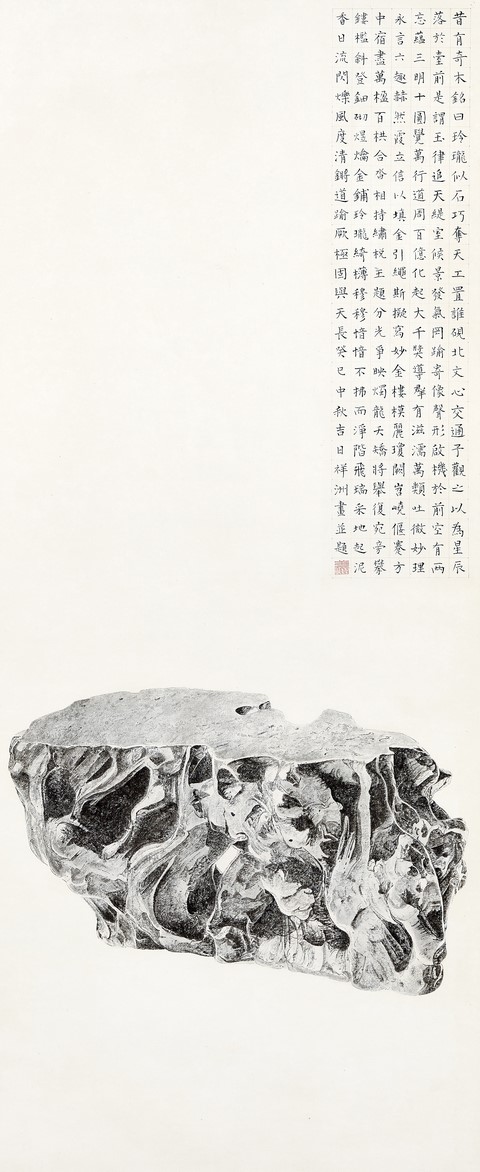 昔有奇木銘曰玲瓏似石巧奪天工置誰硯北文心交通予觀之以為星辰
落於臺前是謂玉律追天緹室候景發氣罔踰寄像聲形啟機於前空有兩
忘蘊三明十圓覺萬行道周百億化起大千奘導群有滋濡萬類吐微妙理
永言六趣赫然霞立信以填金引繩斯擬寫妙金樓模麗瓊闕岧嶢偃蹇方
中宿盡萬楹百栱合沓相持繡棁玉題分光爭映燭龍夭矯將舉復宛奇攀
鏤檻斜登鈿砌煜爚金鋪玲瓏綺欂穆穆愔愔不拂而淨階飛瑞采地起泥
香日流閃爍風度清鏘道踰厥極固與天長癸巳中秋吉日祥洲畫並題